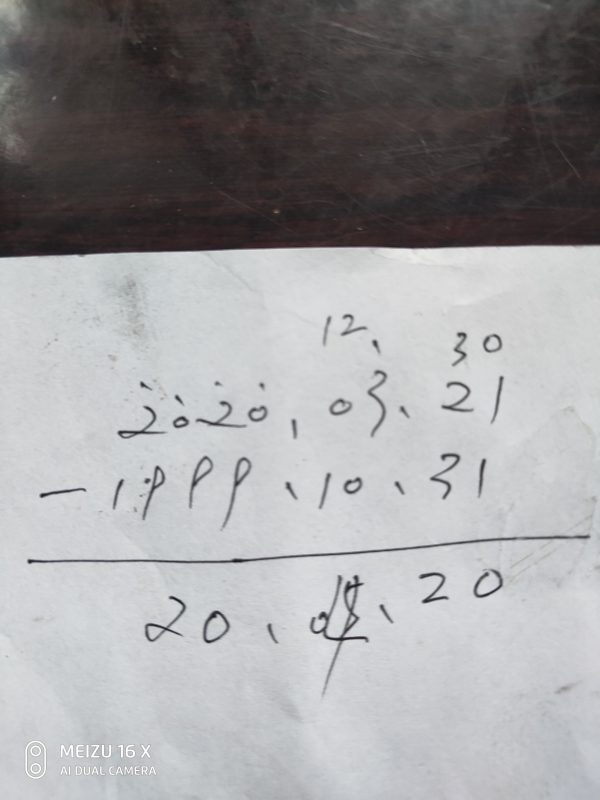 12、 30
2020、03、21
-1999、10、31
20、04、20
MEIZU 16 X
AI DUAL CAMERA